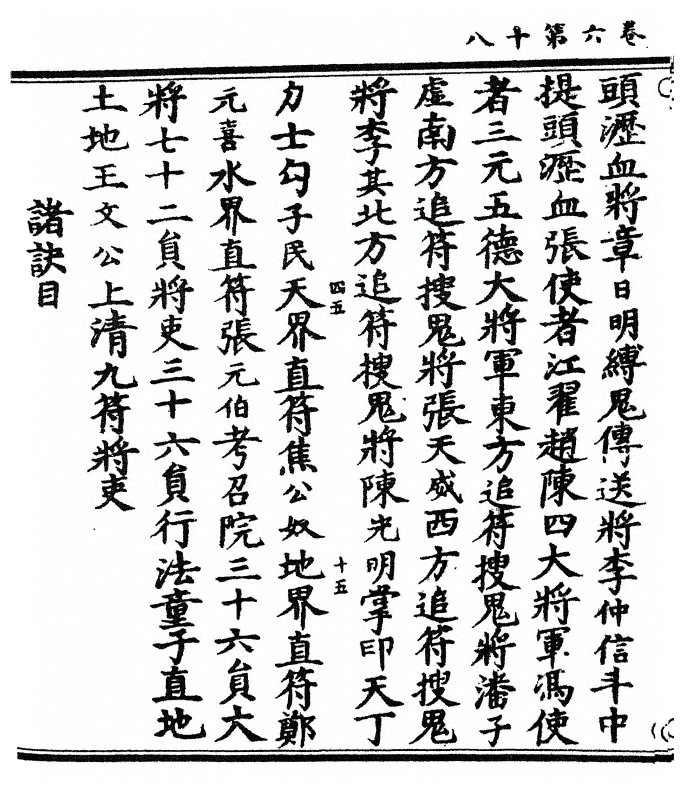 卷六第十八
頭瀝血將章日明縛鬼傳送將李仲信斗中
提頭瀝血張使者江翟趙陳四大將軍馮使
者三元五德大將軍東方追符搜鬼將潘子
虛南方追符搜鬼將張天威西方追符搜鬼
將李其北方追符搜鬼將陳光明掌印天丁
四五
十五
力士勾子民天界直符焦公奴地界直符鄭
元喜水界直符張元伯考召院三十六員大
將七十二員將吏三十六員行法童子直地
土地王文公上清九符將吏
諸訣目